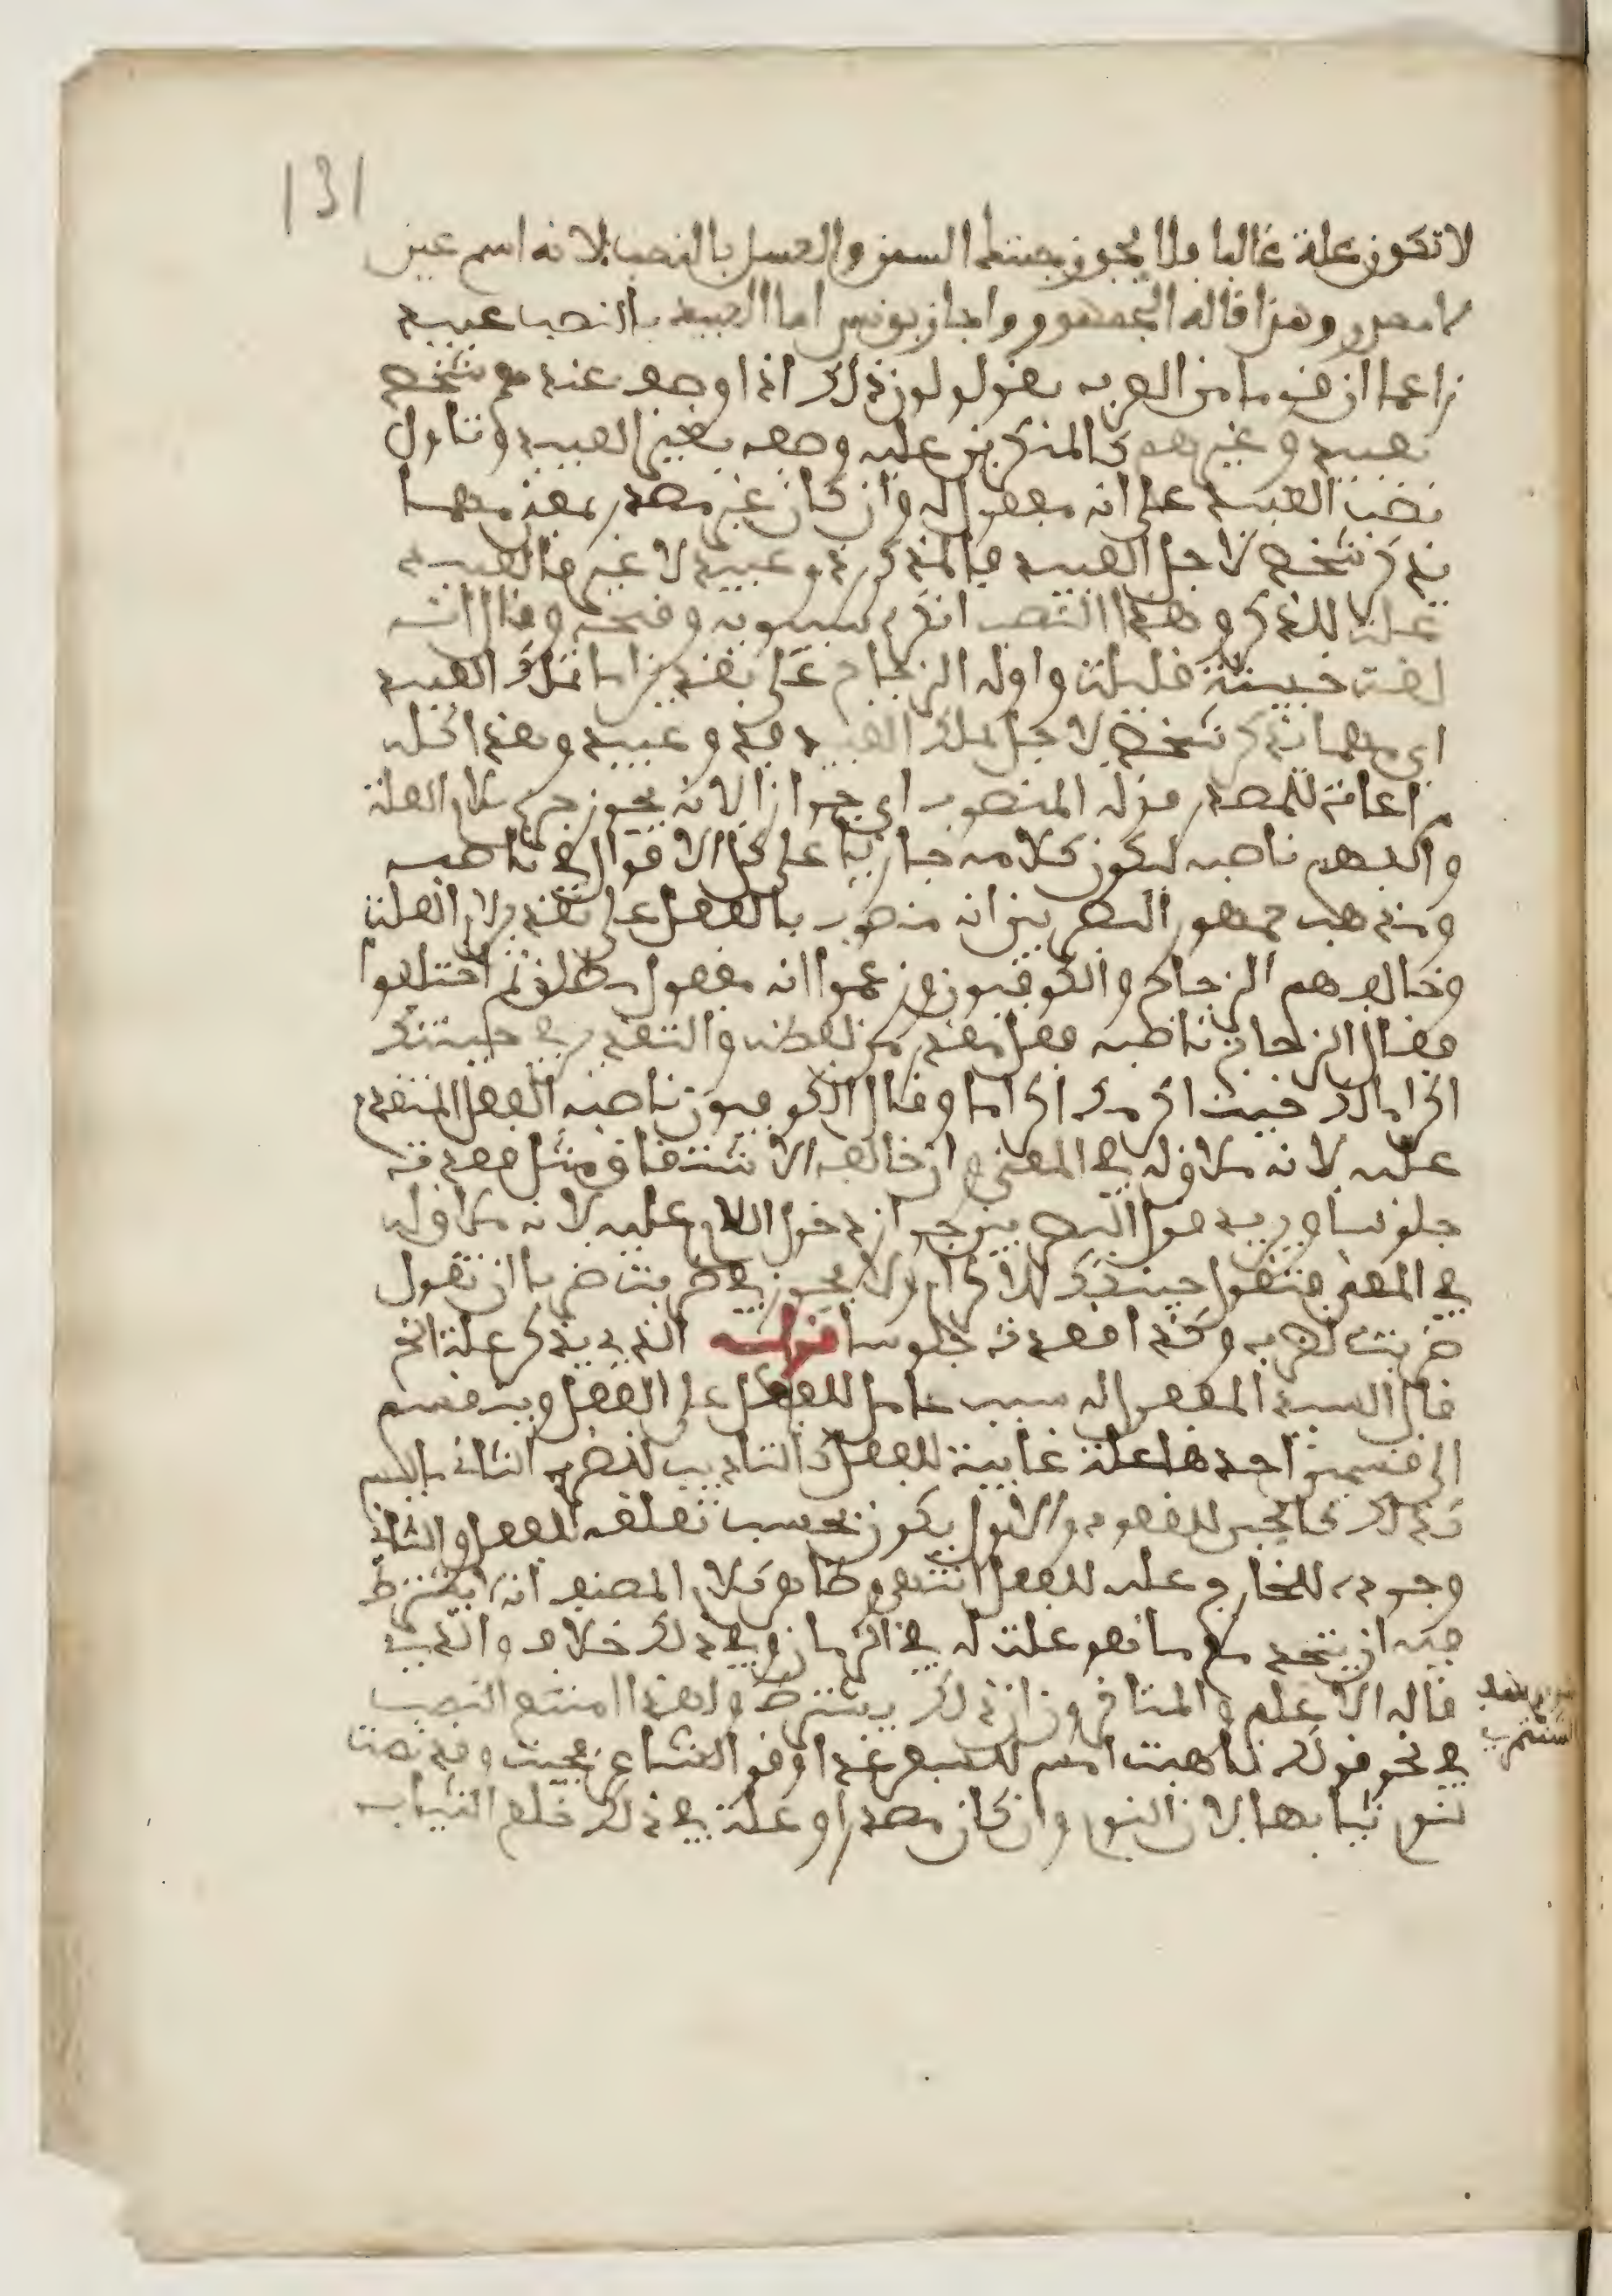 131
لا تكون علة غالبا فلا يجوز جئتك السمن والعسل بالنصب لانه اسم عين
لا مصدر وهذا قاله الجمهور واجاز يونس اما العبيد بالنصب عبيد
زاعما ان قوما من العرب يقولون ذلك اذا وصف عنده شخص
بعبيد وغيرهم كالمنكرين عليه وصفه بغير العبيد وتناول
نصب العبيد على انه مفعول له وان كان غير مصدر بمعنى مهما
يذكر شخص لاجل العبيد فالمذكور ذو عبيد لا غير فالعبيد
علة للذكر وهذا النصب انكره سيبويه وقبحه وقال انه
لغة خبيثة قليلة واوله الزجاج على تقدير اما تملك العبيد
اي مهما يذكر شخص لاجل تملك العبيد فهو ذو عبيد وهذا كله
مراعاة للمصدر قوله المنصوب اي جوازا لانه يجوز جره بلام العلة
وابهم ناصبه ليكون كلامه جاريا على كل الاقوال في ناصبه
ومذهب جمهور البصريين انه منصوب بالفعل على تقدير لام العلة
وخالفهم الزجاج والكوفيون وزعموا انه مفعول مطلق ثم اختلفوا
فقال الزجاج ناصبه فعل مقدر من لفظه والتقدير في جئتك
اكراما لك جئت اكرمك اكراما وقال الكوفيون ناصبه الفعل المتقدم
عليه لانه ملاقيه في المعنى وان خالفه الاشتقاق مثل قعدت
جلوسا ويريد قول البصريين جواز دخول اللام عليه لانه ملاقيه
في المعنى فتقول جئتك للاكرام ولا يجوز في ضربت ضربا ان تقول
ضربت لضرب وكذا قعدت جلوسا قوله الذي يذكر علة الخ
قال السيد المفعول له سبب حامل للفاعل على الفعل وينقسم
الى قسمين احدهما علة غايية للفعل كالتاديب للضرب الثاني ما ليس
كذلك كالجبن للقعود والاول يكون بحسب تعلقه للفعل والثاني
وجوده للخارج علة للفعل انتهى وظاهر كلام المصنف انه لا يشترط
فيه ان يتحد مع ما هو علة له في الزمان وفي ذلك خلاف والذي
قاله الاعلم والمتاخرون ان ذلك يشترط ولهذا امتنع النصب
في نحو قولك تاهبت امس للسفر غدا وقول الشاعر فجئت وقد نضت
لنوم ثيابها لان النوم وان كان مصدرا وعلة في ذلك خلع الثياب
الشنتمري